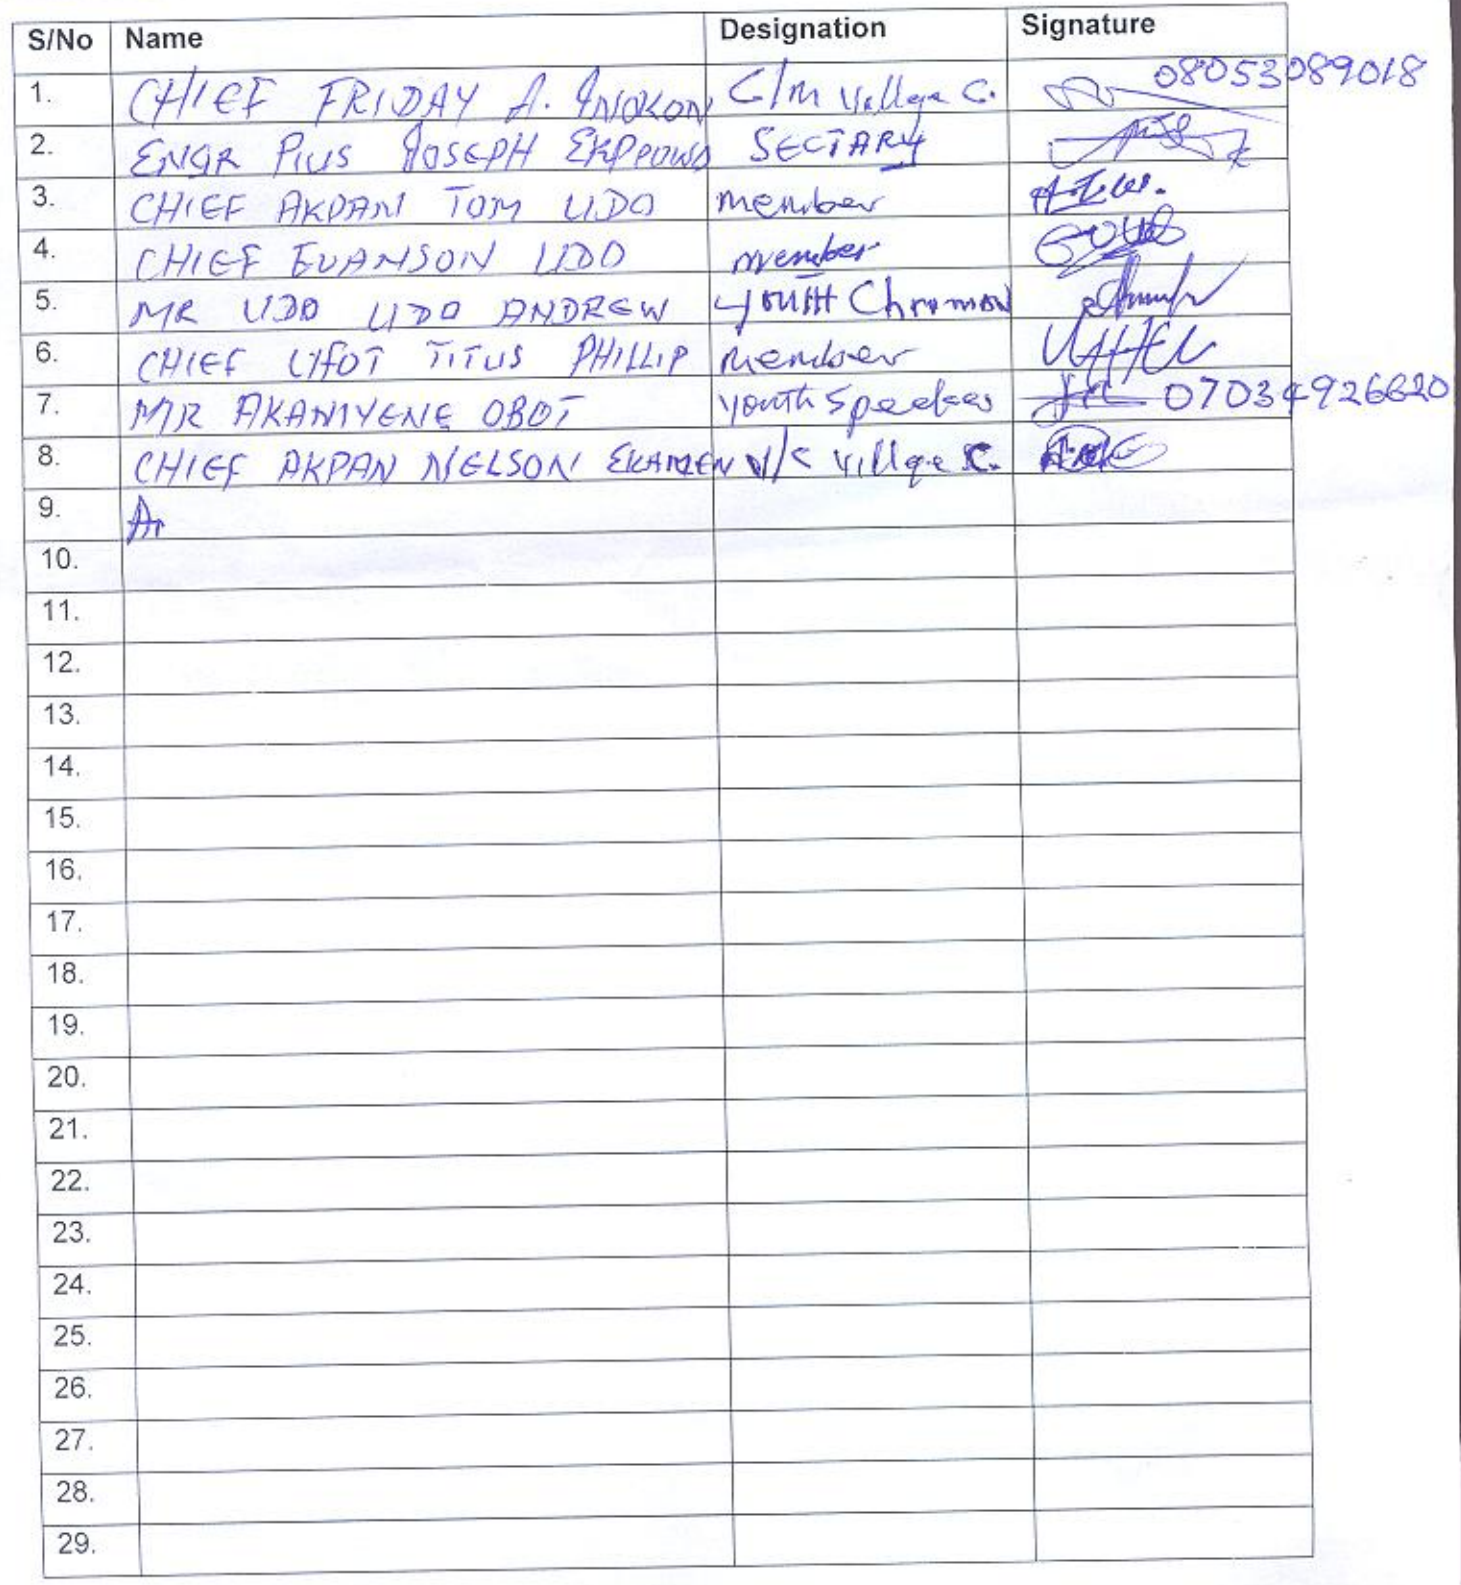 S/No Name Designation Signature
1. CHIEF FRIDAY A. INIOKON C/m Village C. 08053089018
2. ENGR PIUS JOSEPH SECTARY
3. CHIEF AKPAN TOM UDO member
4. CHIEF EVANSON UDO member
5. MR UDO UDO ANDREW youth Chroman
6. CHIEF UFOT TITUS PHILLIP member
7. MR AKANIYENE OBOT youth Speaker 07034926620
8. CHIEF AKPAN NELSON V/C Village C.
9.
10.
11.
12.
13.
14.
15.
16.
17.
18.
19.
20.
21.
22.
23.
24.
25.
26.
27.
28.
29.